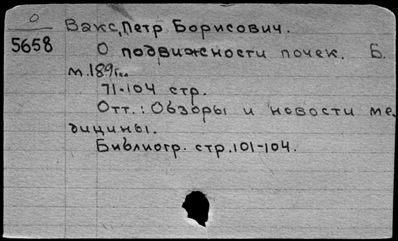 О
5658
Вакс, Петр Борисович.
О подвижности почек. Б.
м. 189 г..
71-104 стр.
Отт.: Обзоры и новости ме
дицины.
Библиогр. стр. 101-104.